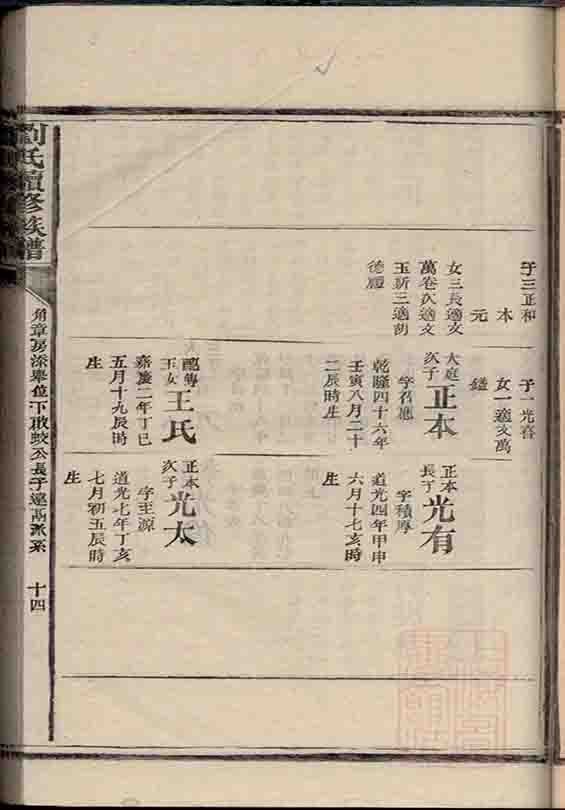 子三正和
本
元
女三長適文
萬卷次適文
玉新三適胡
德
子一光春
女一適文萬
鎰
大庭
次子
正本
字召應
乾隆四十六年
壬寅八月二十
二辰時生
配傅
玉女
王氏
嘉慶二年丁巳
五月十九辰時
生
正本
長子
光有
字積厚
道光四年甲申
六月十七亥時
生
正本
次子
光太
字至源
道光七年丁亥
七月初五辰時
生
劉氏續修族譜
角章房深舉位下敢蛟公長子達派系
十四